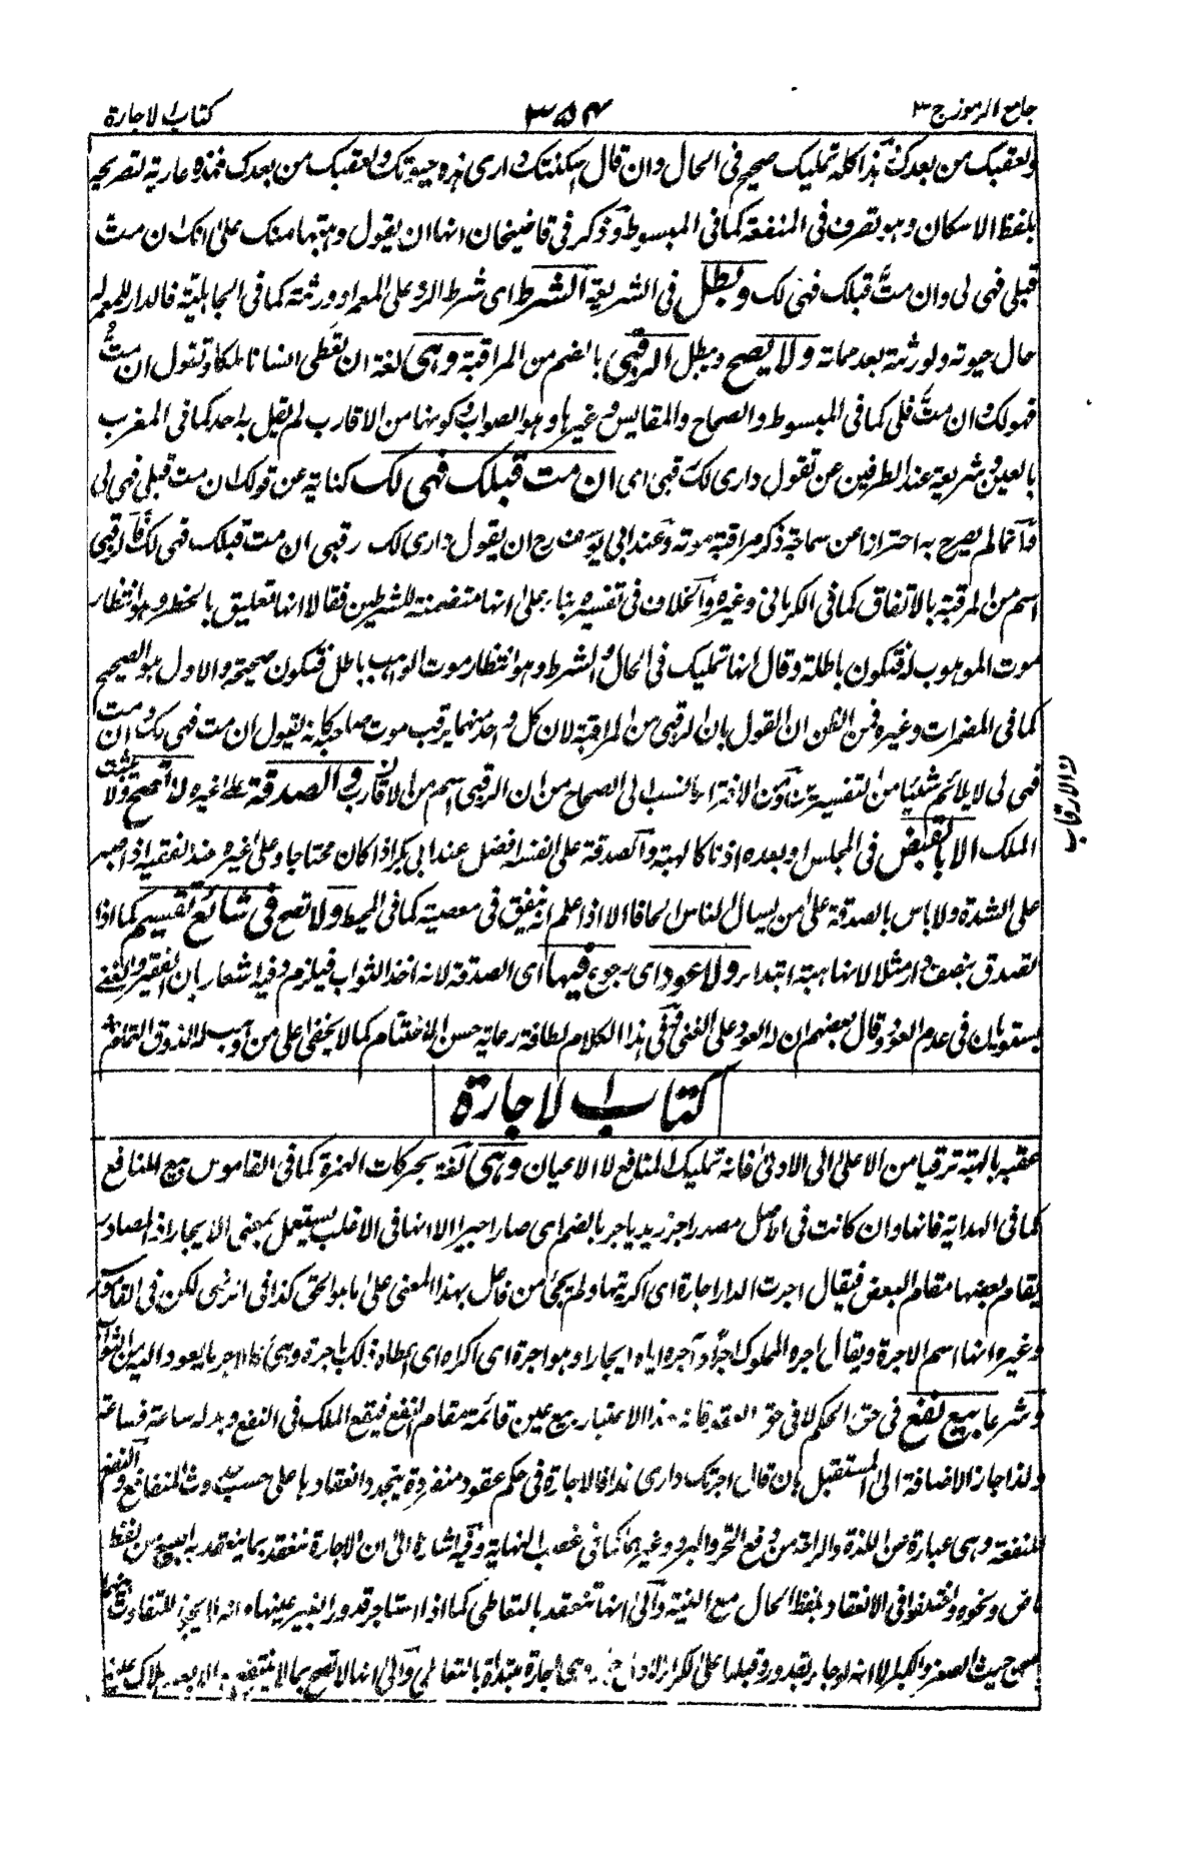 جامع الرموز ج ٣
٣٥٤
كتاب الاجارة
ولعقبك من بعدك فهذا كله تمليك صحيح فى الحال وان قال اسكنتك دارى هذه حيوتك ولعقبك من بعدك فهذه عارية لتصريحه
بلفظ الاسكان وهو تصرف فى المنفعة كما فى المبسوط وذكر فى قاضيخان انها ان يقول وهبتها منك على انك ان مت
قبلى فهى لى وان مت قبلك فهى لك ويبطل فى الشريعة الشرط اى شرط الرد على المعمر او ورثته كما فى الجاهلية فالدار للمعمر له
حال حيوته ولورثته بعد مماته ولا يصح ويبطل الرقبى بالضم من المراقبة وهى لغة ان تعطى انسانا ملكا وتقول ان مت
فهو لك وان مت فلى كما فى المبسوط والصحاح والمقايس وغيرها وهو الصواب وكونها من الاقارب لم يقل به احد كما فى المغرب
بالعين وشريعة عند الطرفين عن تقول دارى لك رقبى اى ان مت قبلك فهى لك كناية عن قولك ان مت قبلى فهى لى
وانما لم يصرح به احترازا عن سماجة ذكر مراقبة موته وعند ابى يوسف رح ان يقول دارى لك رقبى ان مت قبلك فهى لك فالرقبى
اسم من المرقبة بالاتفاق كما فى الكرمانى وغيره والخلاف فى تفسيره بناء على انها متضمنة للشرطين فقالا انها تعليق بالخطر وهو انتظار
موت الموهوب له فتكون باطلة وقال انها تمليك فى الحال والشرط وهو انتظار موت الواهب باطل فتكون صحيحة والاول هو الصحيح
كما فى المضمرات وغيره فمن الظن ان القول بان الرقبى من المراقبة لان كل واحد منهما يرقب موت صاحبه كانه يقول ان مت فهى لك وان مت
فهى لى لا يلائم شيئا من التفسيرين ومن الافتراء بالنسب الى الصحاح من ان الرقبى اسم من الاقارب والصدقة على غيره لا تصح ولا يثبت
والارقاب
الملك الا بالقبض فى المجلس او بعده اذنا كالهبة والصدقة على نفسه افضل عند ابى بكر اذا كان محتاجا وعلى غيره عند الفقيه اذا صبر
على الشدة ولا باس بالصدقة على من يسال الناس الحافا الا اذا علم انه ينفق فى معصية كما فى المحيط ولا تصح فى شائع تقسيم كما اذا
تصدق بنصف دار مثلا لانها هبة ابتداء ولا عود اى رجوع فيها اى الصدقة لانه اخذ الثواب فيلزم وفيه اشعار بان الفقير والغنى
يستويان فى عدم العود وقال بعضهم ان له العود على الغنى وفى هذا الكلام لطافة رعاية حسن الاختتام كما لا يخفى على من وهب له الذوق التام
كتاب الاجارة
عقبه بالهبة ترقيا من الاعلى الى الادنى فانه تمليك المنافع لا الاعيان وهى لغة بحركات الهمزة كما فى القاموس بيع المنافع
كما فى الهداية فانها وان كانت فى الاصل مصدر اجر زيد ياجر بالضم اى صار اجيرا الا انها فى الاغلب يستعمل بمعنى الايجار اذ المصادر
يقام بعضها مقام البعض فيقال اجرت الدار اجارة اى اكريتها ولم يجئ من فاعل بهذا المعنى على ما هو الحق كذا فى الرضى لكن فى القاموس
وغيره انها اسم الاجرة ويقال اجره المملوك اجرا وآجره اياه ايجارا ومواجرة اى اكراه اى اعطاه ذلك باجرة وهى كالاجر ما يعود اليه من الثواب
وشرعا بيع نفع فى حق الحكم لا فى حق العقد فانه بهذا الاعتبار بيع عين قائمة مقام النفع فيقع الملك فى النفع وبدله ساعة فساعة
ولذا جاز الاضافة الى المستقبل بان قال اجرتك دارى غدا فالاجارة فى حكم عقود منفردة يتجدد انعقادها على حسب حدوث المنافع والنفع
المنفعة وهى عبارة عن اللذة والراحة من دفع الحر والبرد وغيرهما كما فى غصب النهاية وفيه اشارة الى ان الاجارة تنعقد بما ينعقد به البيع من لفظ
ماض ونحوه واختلفوا فى الانعقاد بلفظ الحال مع النية والى انها تنعقد بالتعاطى كما اذا استاجر قدورا بغير عينها فانه لا يجوز للتفاوت بينها
من حيث الصغر والكبر الا انه لو جاء بقدور وقبلها على الكراء الاول جاز وهى اجارة مبتدأة بالتعاطى والى انها لا تصح بما لا ينتفع به الا بعد هلاك عينه